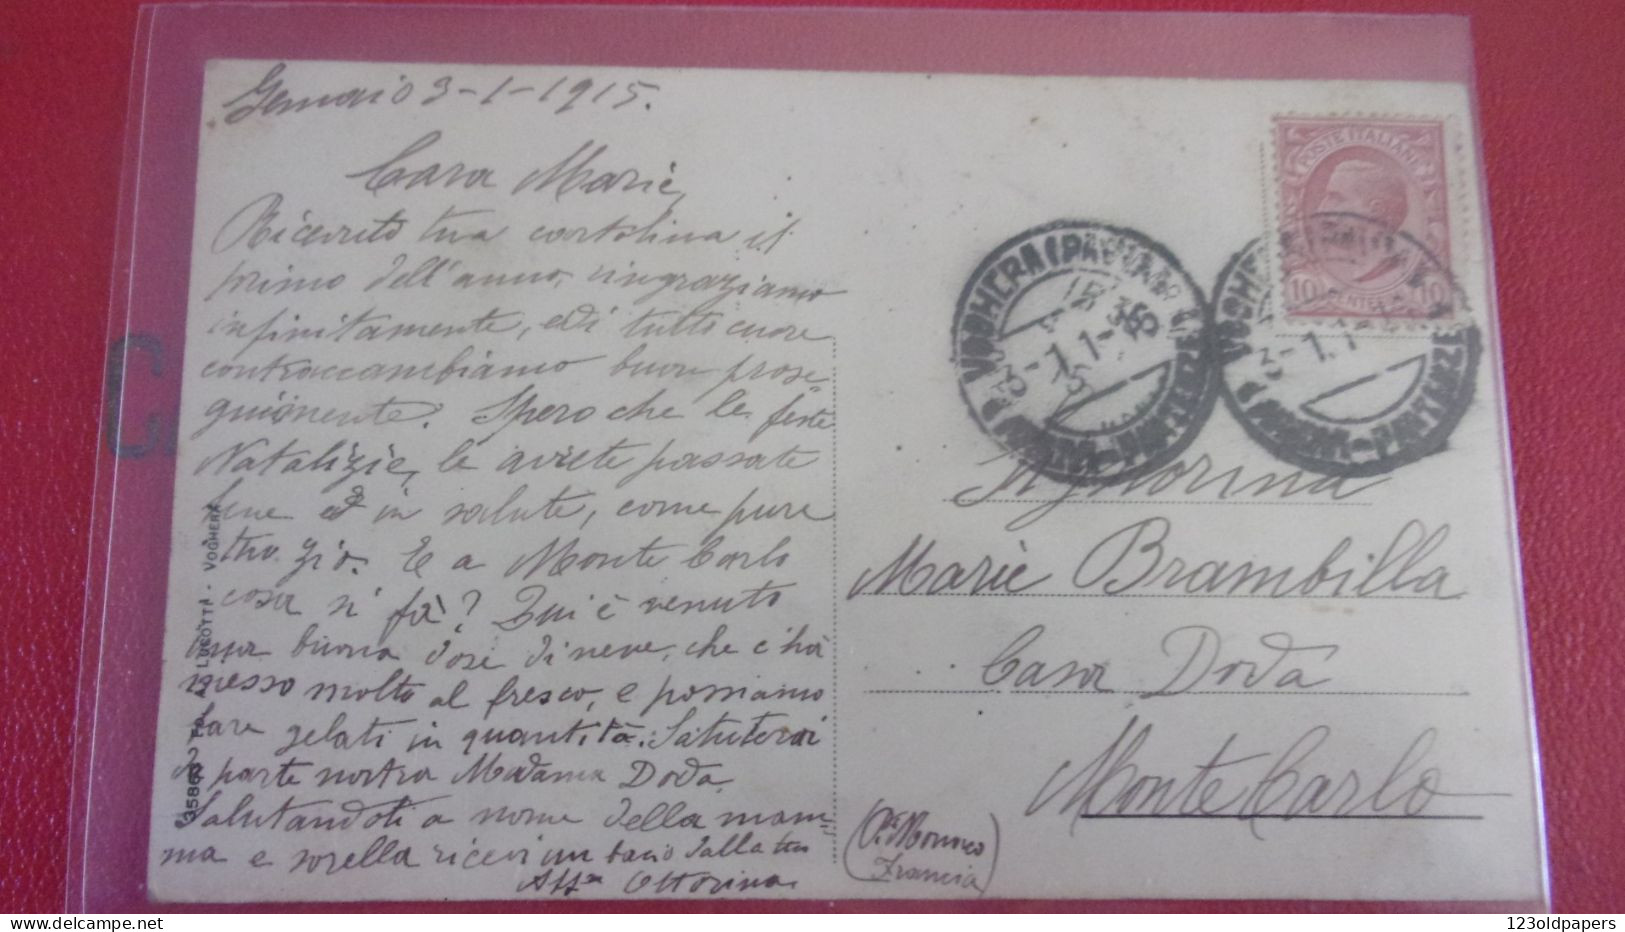 Gennaio 3-1-1915.
Cara Marie,
Ricevuto tua cartolina il
primo dell'anno, ringraziamo
infinitamente, e di tutto cuore
contraccambiamo buon prose-
guimento. Spero che le feste
Natalizie, le avrete passate
bene ed in salute, come pure
tuo zio. E a Monte Carlo
cosa si fà? Qui è venuto
una buona dose di neve, che c'hà
messo molto al fresco, e possiamo
fare gelati in quantità. Saluterai
da parte nostra Madama Dodà.
Salutandoti a nome della mam-
ma e sorella ricevi un bacio dalla tua
Aff.ma Ottorina
35863 LUCOTTI - VOGHERA
POSTE ITALIANE
10 CENTESIMI 10
VOGHERA (PAVIA)
3-1.1-15
ARRIVI-PARTENZE
VOGHERA
3-1.1
ARRIVI-PARTENZE
Signorina
Mariè Brambilla
Casa Dodà
Monte Carlo
(P. Monaco
Francia)
C.
123oldpapers